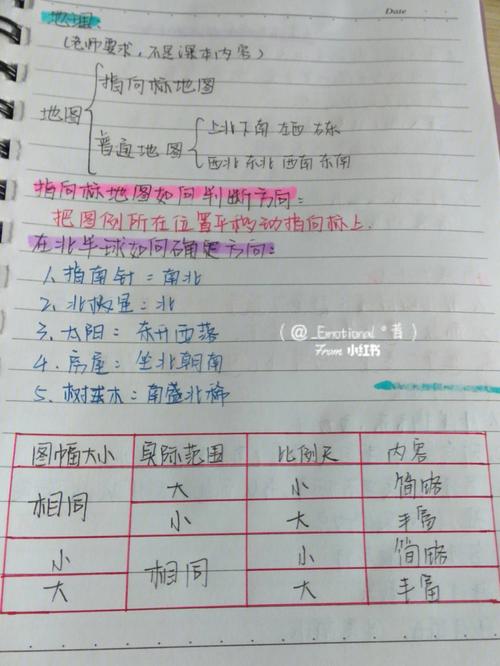 Date
地理
(老师要求，不是课本内容)
指向标地图
地图
普通地图
上北下南 左西 右东
西北 东北 西南 东南
指向标地图如何判断方向：
把图例所在位置平移动指向标上.
在北半球如何确定方向：
1. 指南针：南北
2. 北极星：北
3. 太阳：东升西落
4. 房屋：坐北朝南
5. 树木：南盛北稀
(@_Emotional°昔)
From 小红书
图幅大小 实际范围 比例尺 内容
相同 大 小 简略
小 大 丰富
小 相同 小 简略
大 大 丰富